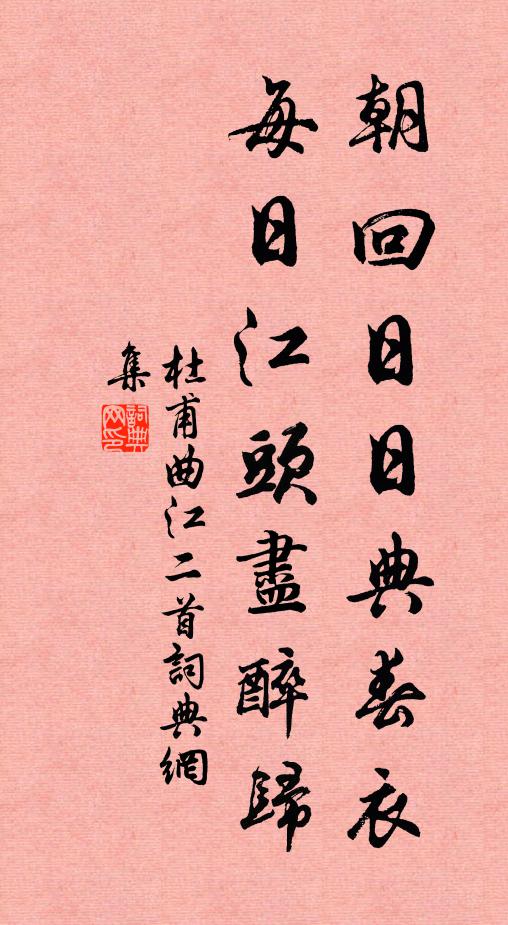 朝回日日典春衣
每日江頭盡醉歸
杜甫曲江二首詞典網
集
詞典
网印